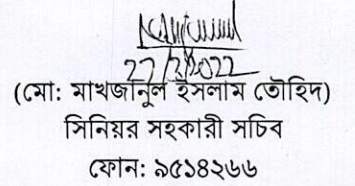 27/2/2022
(মো: মাখজানুল ইসলাম তৌহিদ)
সিনিয়র সহকারী সচিব
ফোন: ৯৫১৪২৬৬